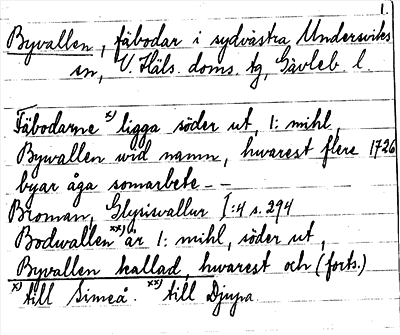 1.
Byvallen, fäbodar i sydvästra Undersviks
sn, V. Häls. doms. tg, Gävleb. l.
Fäbodarne x) ligga söder ut, 1: mihl,
Bywallen wid namn, hwarest flere 1726
byar äga somarbete - -
Broman, Glysisvallur I:4 s. 294
Bodwallen xx) är 1: mihl, söder ut,
Bywallen kallad, hwarest och (forts.)
x) till Simeå. xx) till Djupa.